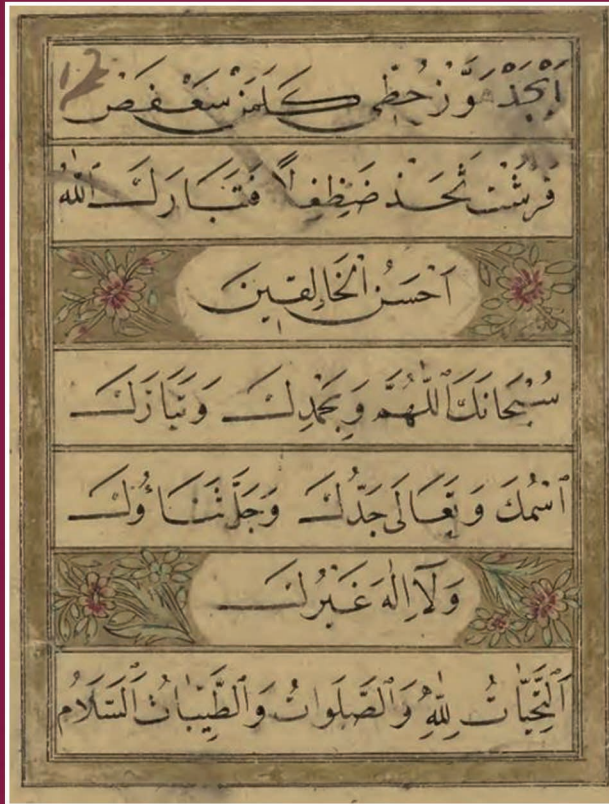 12
اَبْجَدْ هَوَّزْ حُطِّي كَلَمَنْ سَعْفَصْ
قَرَشَتْ ثَخَذْ ضَظِغْلًا فَتَبَارَكَ اللّٰهُ
اَحْسَنُ الْخَالِقِينَ
سُبْحَانَكَ اللّٰهُمَّ وَبِحَمْدِكَ وَتَبَارَكَ
اسْمُكَ وَتَعَالَى جَدُّكَ وَجَلَّ ثَنَاؤُكَ
وَلَآ اِلٰهَ غَيْرُكَ
اَلتَّحِيَّاتُ لِلّٰهِ وَالصَّلَوَاتُ وَالطَّيِّبَاتُ اَلسَّلَامُ